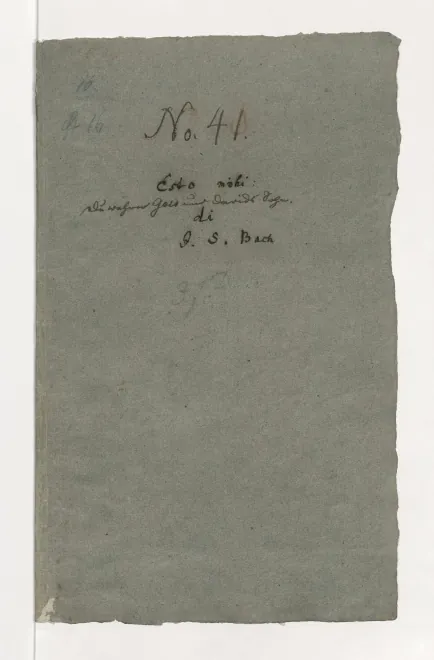 No. 41.
Esto nobi:
Du wahrer Gott und Davids Sohn.
di
J. S. Bach